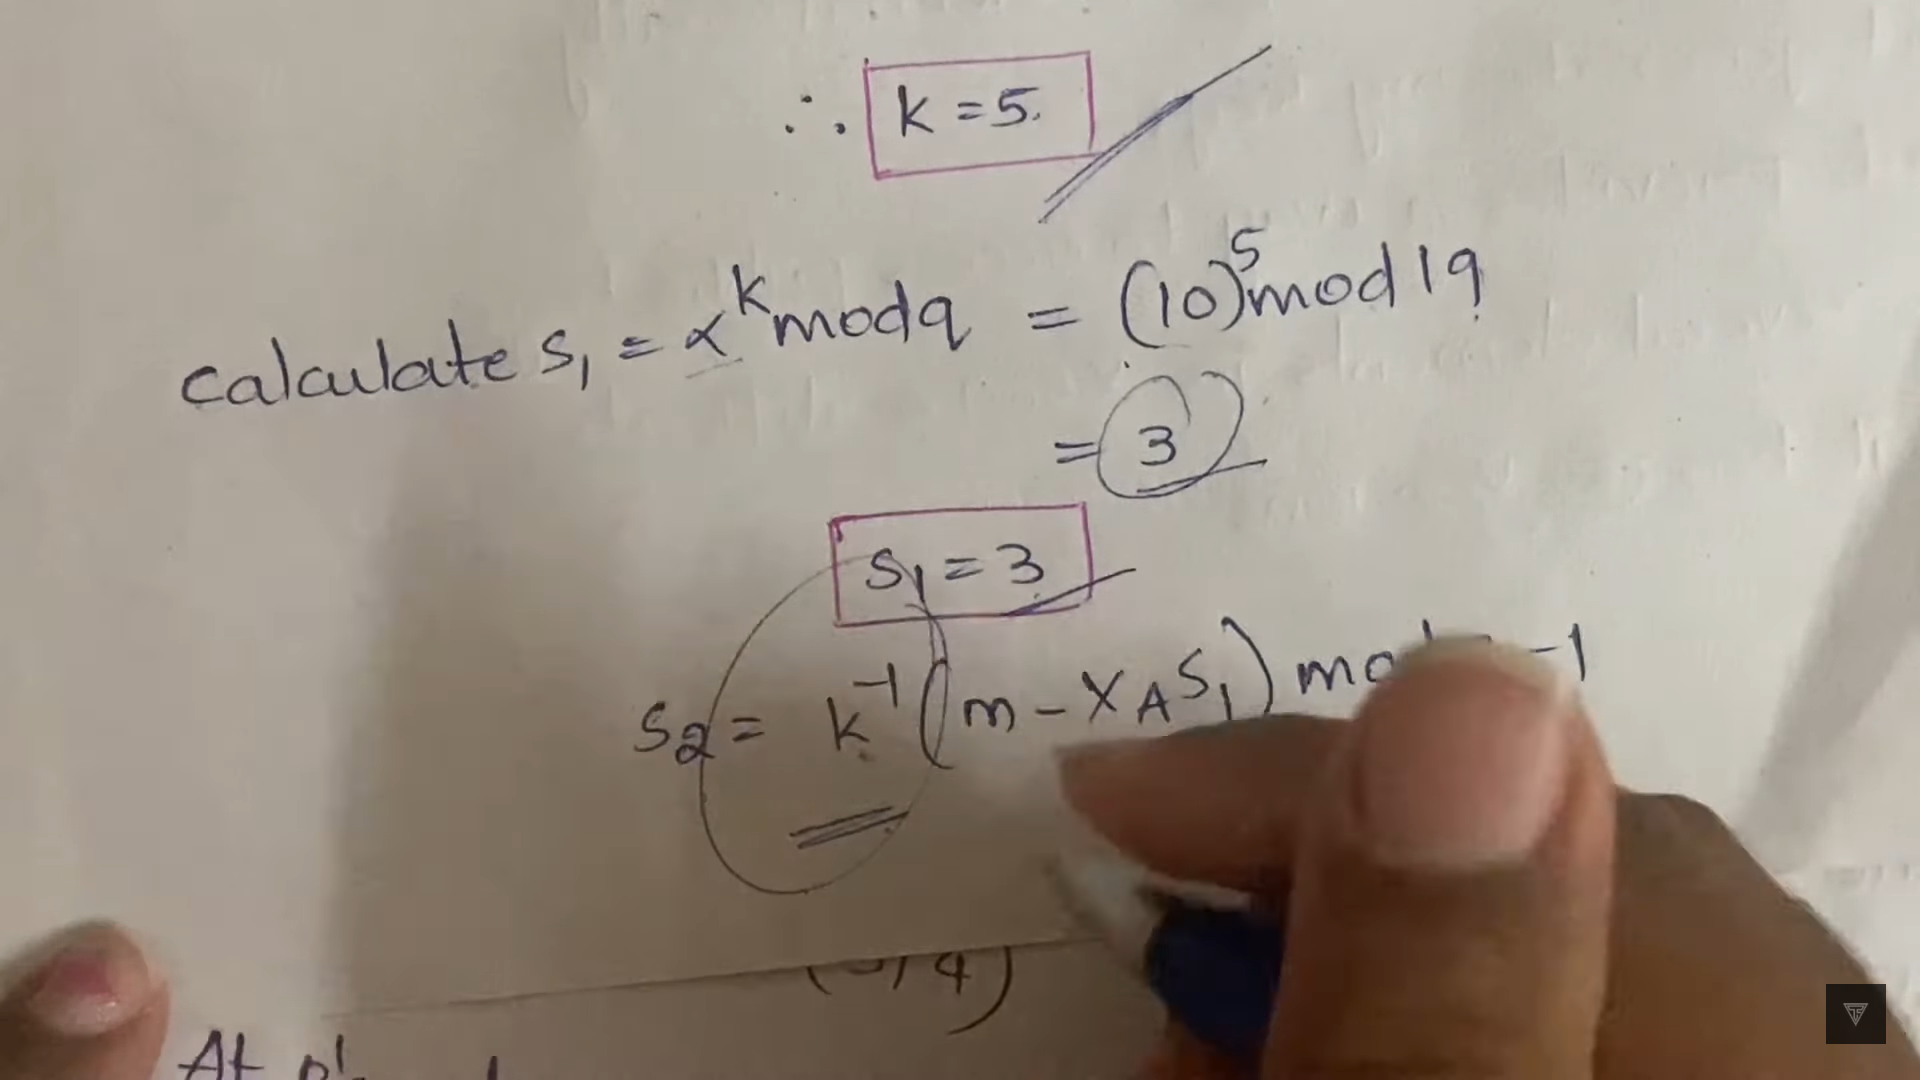 ∴ k = 5.
calculate s₁ = α^k mod q = (10)^5 mod 19
= 3
s₁ = 3
s₂ = k^-1 (m - X_A S₁) -1
4)
At